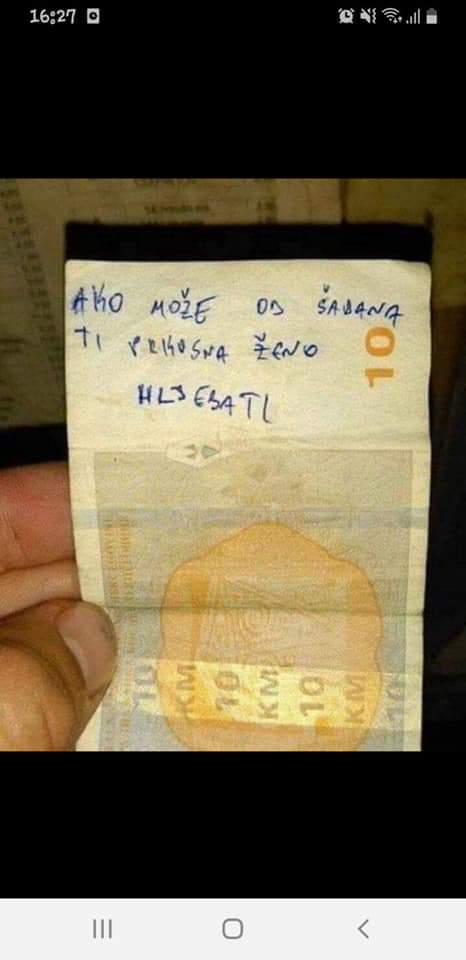 16:27
AKO MOŽE OD ŠABANA
TI PRKOSNA ŽENO
HLJEBATI
10
10 KM 10 KM 10 KM 10